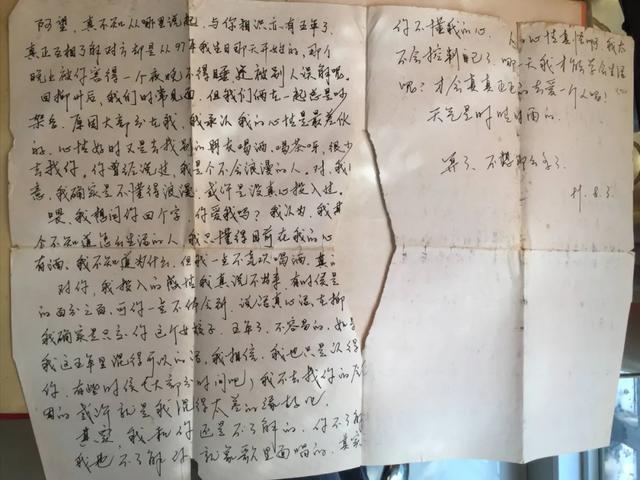 阿望，真不知从哪里说起，与你相识亦有五年了。
真正互相了解对方却是从97年我生日那天开始的，那个
晚上被你害得一个夜晚不得睡还被别人误解呢。
回柳州后，我们时常见面，但我们俩在一起总是吵
架多，原因大部分在我，我承认我的心情是最差伙
的，心情好时又是去找别的朋友喝酒、喝茶呀，很少
去找你，你曾经说过，我是个不会浪漫的人。对，我
意，我确实是不懂得浪漫，或许是没真心投入过。
喂，我想问你四个字，你爱我吗？我认为，我
个不知道怎么生活的人，我只懂得目前在我的心
有酒，我不知道为什么，但我一点不喜欢喝酒，真的
对你，我投入的感情我真说不出来，有时候是
的百分之百，可你一点不体会到，说得真心话，在柳
我确实是只和你这个女孩子，五年了，不容易的，如
我这五年里混得可以的话，我相信，我也只是认得
你，有些时候（大部分时间吧）我不去找你的
因的或许就是我混得太差的缘故吧
其实，我和你还是不了解的，你不了解
我也不了解你，就象歌里面唱的，其实
你不懂我的心，
人的心情真怪啊，我太
不会控制自己了，哪一天我才能学会生活
呢？才会真真正正的去爱一个人呢！
天气是时晴时雨的，
算了，不想那么多了
8.3.